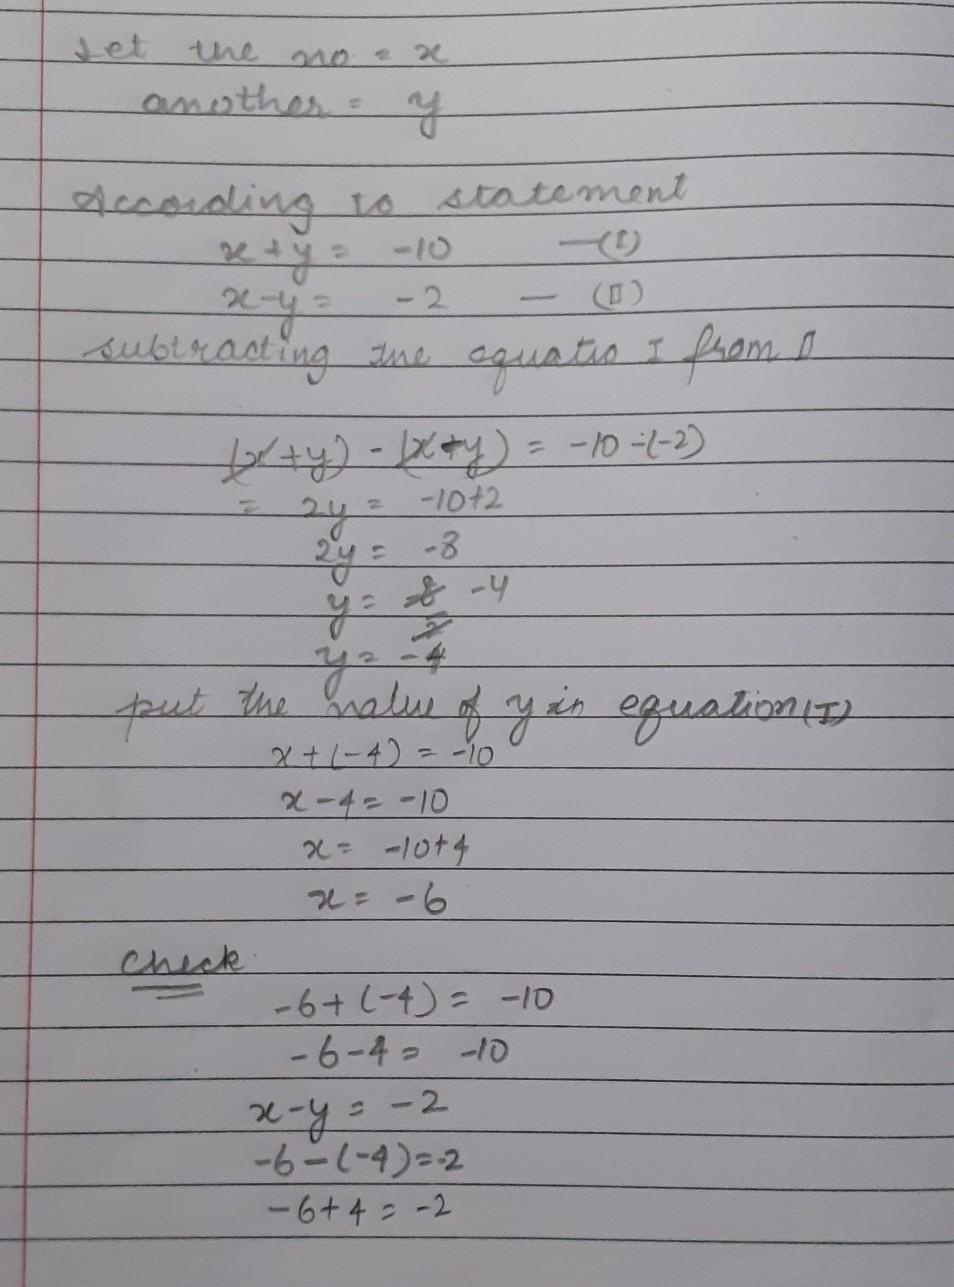 Let the no = x
another = y
According to statement
x + y = -10 —(I)
x-y = -2 — (II)
subtracting the equatio I from II
(x+y) - (x+y) = -10 -(-2)
= 2y = -10+2
2y = -8
y = -8/2 -4
y = -4
put the value of y in equation (I)
x + (-4) = -10
x - 4 = -10
x = -10+4
x = -6
Check
-6 + (-4) = -10
-6-4 = -10
x-y = -2
-6-(-4)=-2
-6+4 = -2